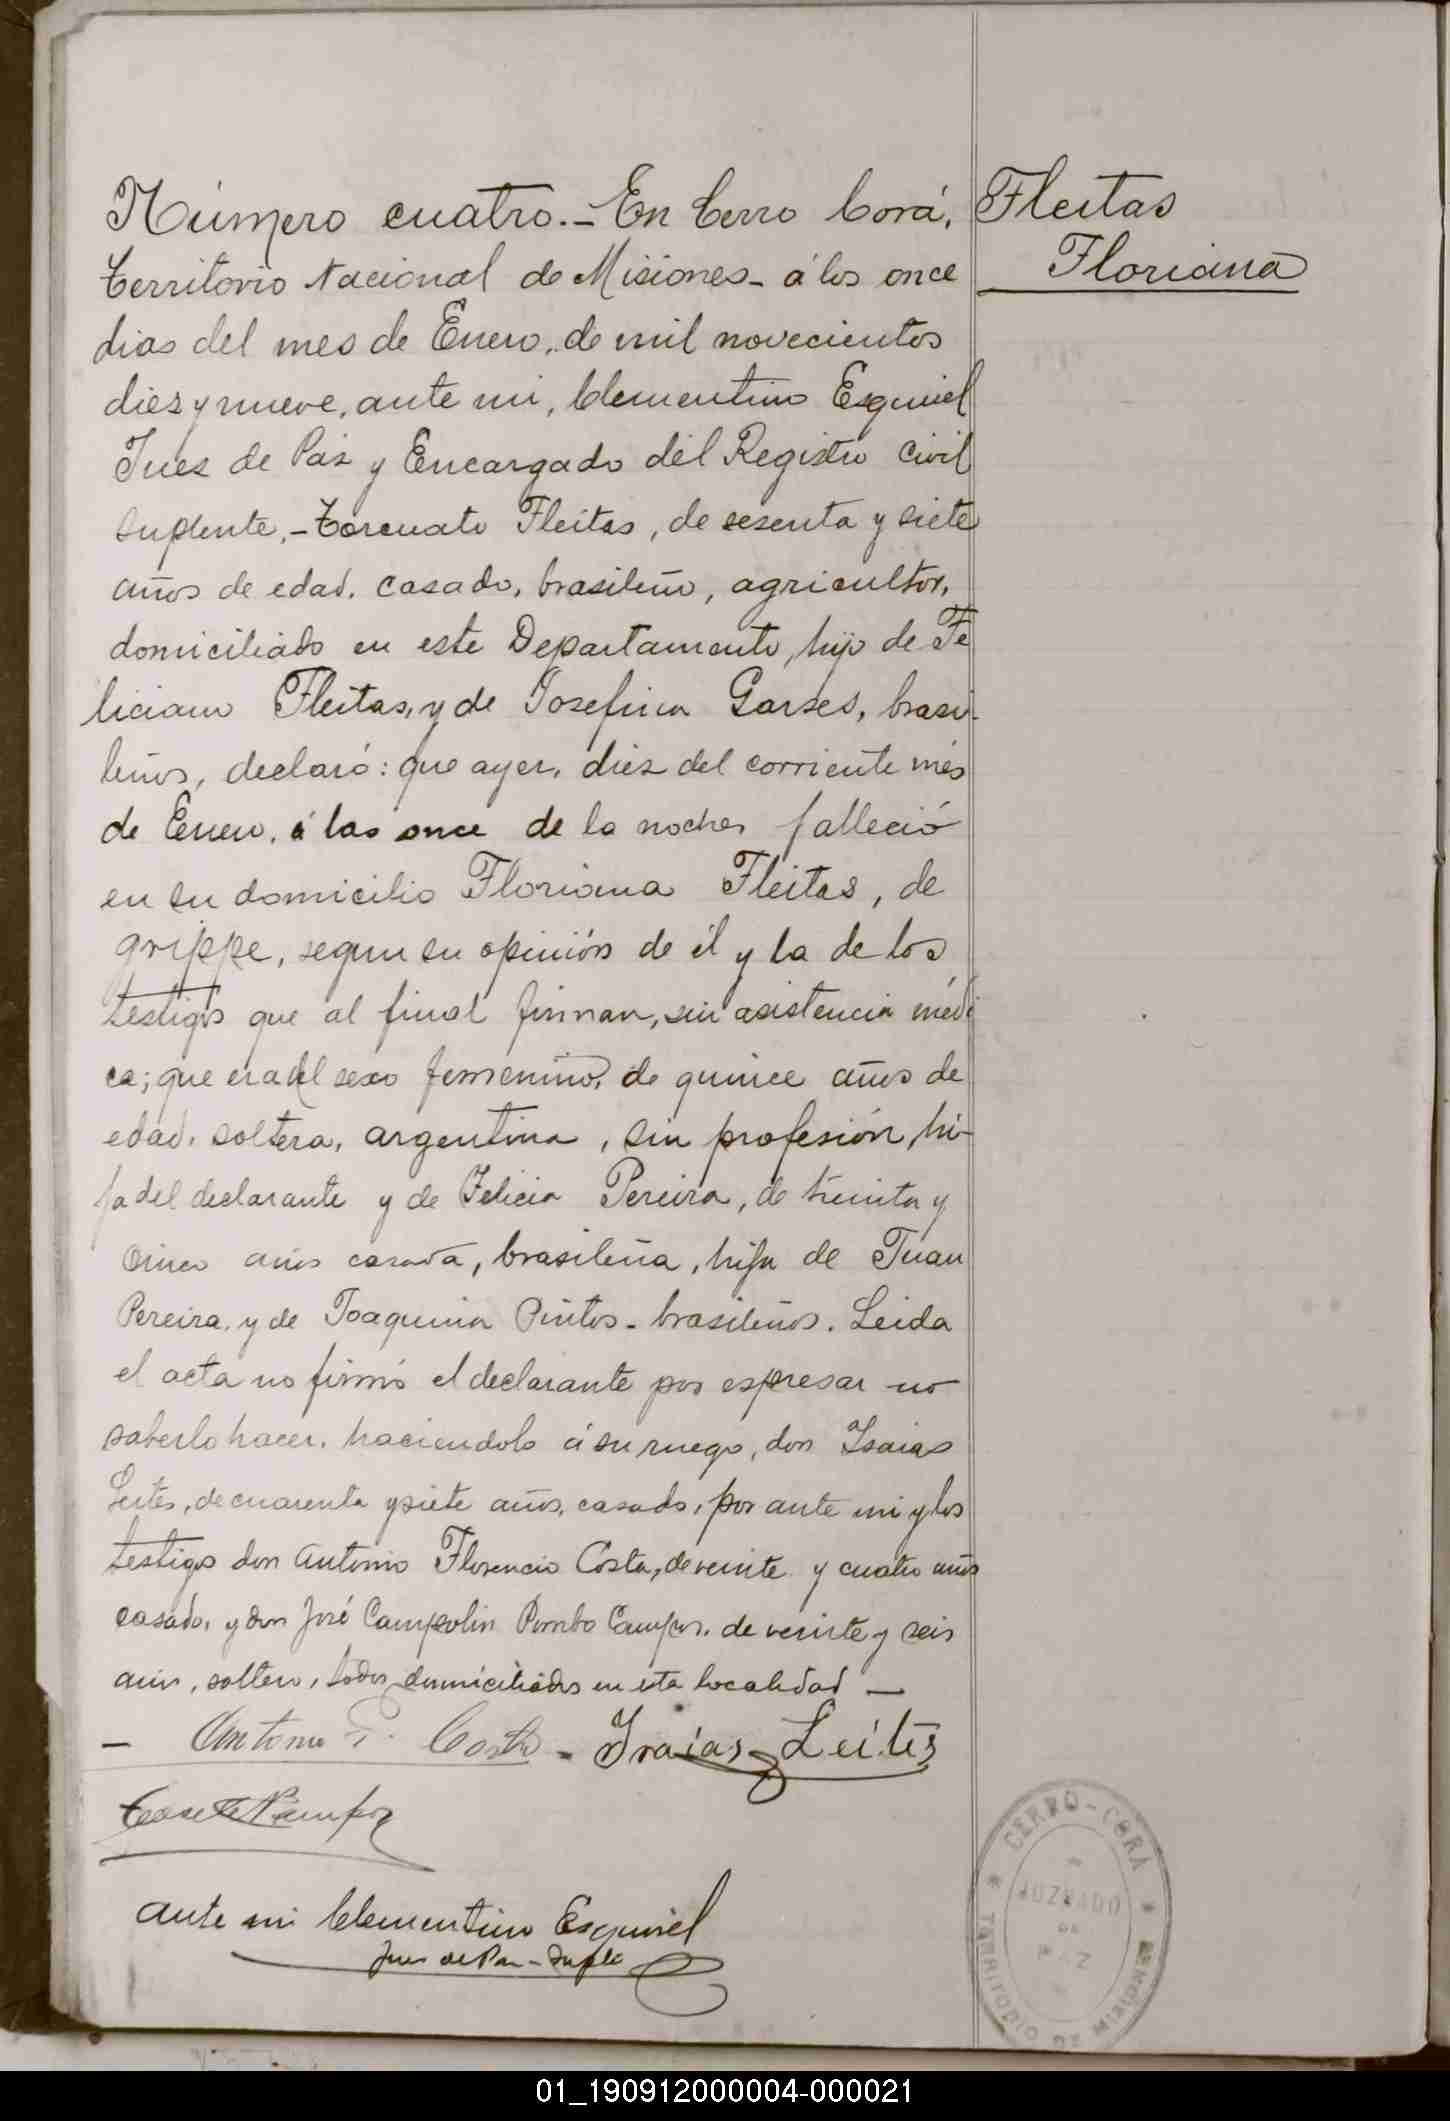 Número cuatro.- En Cerro Corá,
Territorio Nacional de Misiones- á los once
dias del mes de Enero, de mil novecientos
diez y nueve, ante mi, Clementino Esquivel
Juez de Paz y Encargado del Registro civil
suplente,- Torcuato Fleitas, de sesenta y siete
años de edad, casado, brasileño, agricultor,
domiciliado en este Departamento, hijo de Fe
liciano Fleitas, y de Josefina Garses, brasi-
leños, declaró: que ayer, diez del corriente més
de Enero, á las once de la noche, falleció
en su domicilio Floriana Fleitas, de
grippe, segun su opinión de él y la de los
testigos que al final firman, sin asistencia médi
ca; que era del sexo femenino, de quince años de
edad, soltera, argentina, sin profesión, hi-
ja del declarante y de Felicia Pereira, de treinta y
cinco años casada, brasileña, hija de Juan
Pereira, y de Joaquina Pintos- brasileños. Leida
el acta no firmó el declarante por espresar no
saberlo hacer, haciendolo á su ruego, don Isaias
Leites, de cuarenta y siete años, casado, por ante mi y los
testigos don Antonio Florencio Costa, de veinte y cuatro años
casado, y don José Campolin Campos, de veinte y seis
años, soltero, todos domiciliados en esta localidad —
— Antonio F. Costa - Isaías Leites
ante mi Clementino Esquivel
Juez de Paz - Suple
Fleitas
Floriana
CERRO-CORÁ
JUZGADO
DE
PAZ
TERRITORIO DE MISIONES
01_190912000004-000021